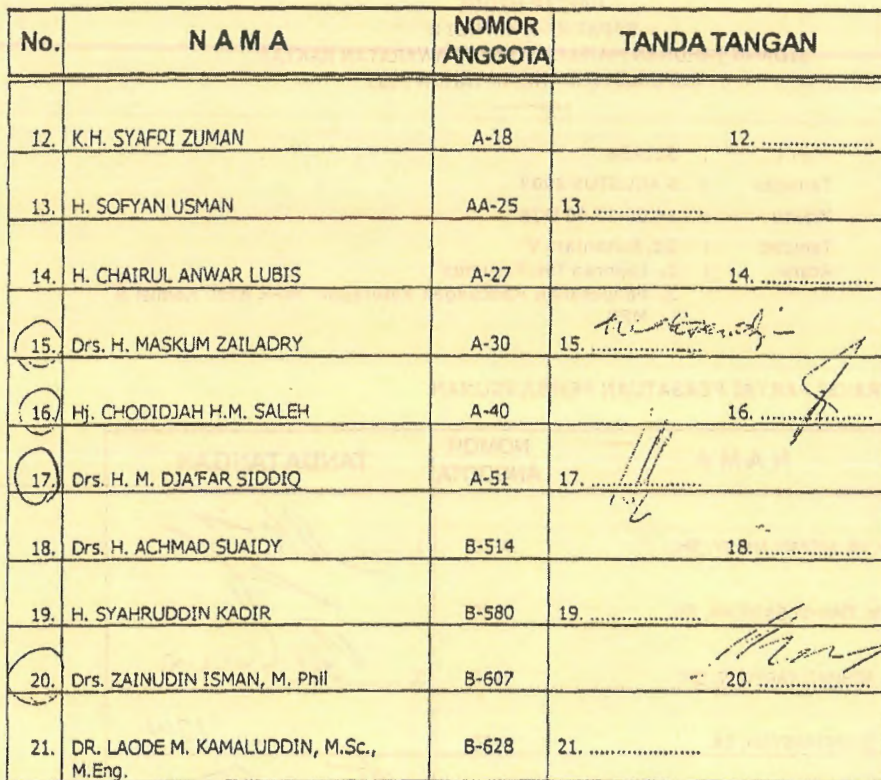 No. N A M A NOMOR ANGGOTA TANDA TANGAN
12. K.H. SYAFRI ZUMAN A-18 12. ....................
13. H. SOFYAN USMAN AA-25 13. ....................
14. H. CHAIRUL ANWAR LUBIS A-27 14. ....................
15. Drs. H. MASKUM ZAILADRY A-30 15. ....................
16. Hj. CHODIDJAH H.M. SALEH A-40 16. ....................
17. Drs. H. M. DJA'FAR SIDDIQ A-51 17. ....................
18. Drs. H. ACHMAD SUAIDY B-514 18. ....................
19. H. SYAHRUDDIN KADIR B-580 19. ....................
20. Drs. ZAINUDIN ISMAN, M. Phil B-607 20. ....................
21. DR. LAODE M. KAMALUDDIN, M.Sc., B-628 21. ....................
M.Eng.